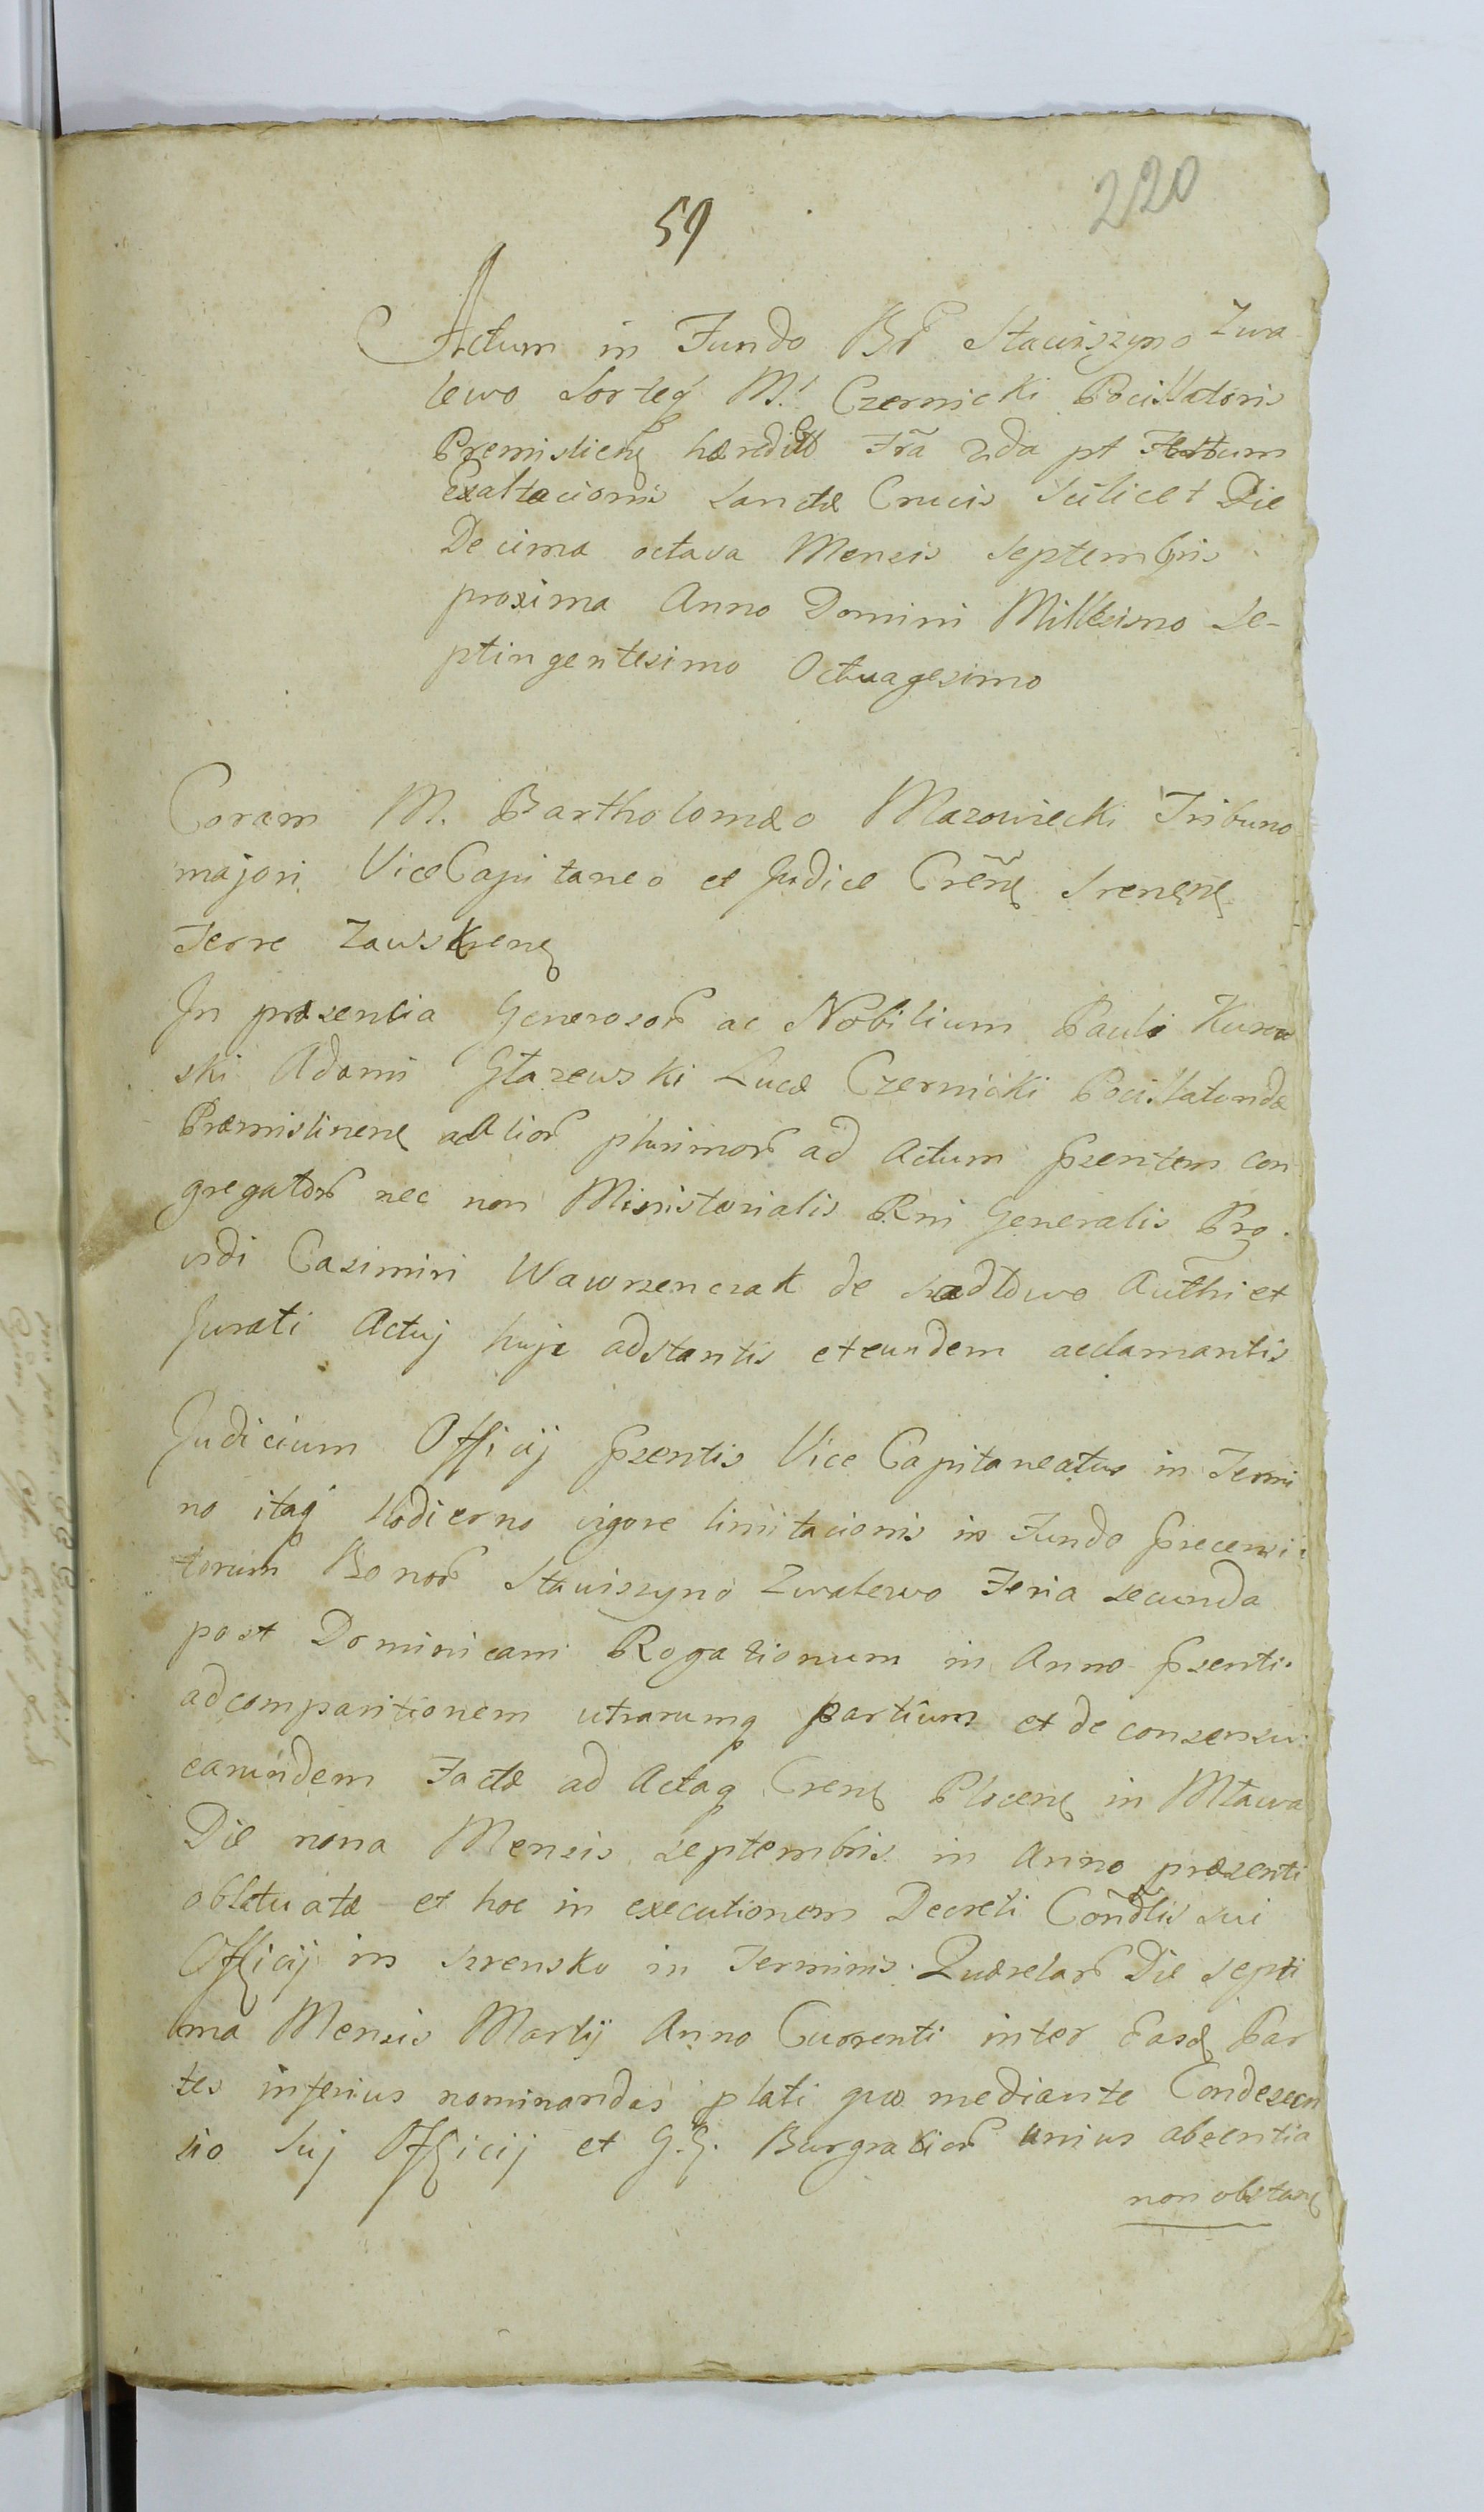 220
59
Actum in Fundo Br̃ Stawiszyno Zwa
lewo Sorteq M. Czernicki Pocillatoris
Premislieñ hæredit Fr̃a 2da pt Festum
Exaltacionis Sanctæ Crucis Scilicet Die
Decima octava Mensis Septembris
proxima Anno Domini Millesimo Se-
ptingentesimo Octuagesimo
Coram M. Bartholomæo Mazowiecki Tribuno
majori ViceCapitaneo et Judice Creñ Sreneñ
Terre Zawskreneñ
In præsentia Generosor̃ ac Nobilium Pauli
ski Adami Głazewski Lucæ Czernicki Pocillatoridæ
Præmislineñ ac Alior̃ plurimor̃ ad Actum pzentem con
gregator̃ nec non Ministerialis Rni Generalis Pro
vidi Casimiri Wawrzenczak de Authi et
Jurati Actuj huje adstantis et eundem aclamantis
Judicium Officij pzentis Vice Capitaneatus in Termi
no itaq hodierno vigore limitacionis in Fundo precensi
torum Bonor̃ Stawiszyno Zwalewo Feria secunda
post Dominicam Rogationum in Anno pzenti
ad comparitionem utrarumq partium et de consensu
earundem Factæ ad Actaq Creñ Ploceñ in Mława
Die nona Mensis Septembris in Anno præsenti
oblatuatæ et hoc in executionem Decreti Coñdlis sui
Officij in Szrensko in Terminis Quærelar̃ Die Septi
ma Mensis Martij Anno Currenti inter Easd Par
tes inferius nominandas plati quo mediante Condescen
sio Suj Officij et G.G. Burgrabior̃ unius absentia
non obstañ